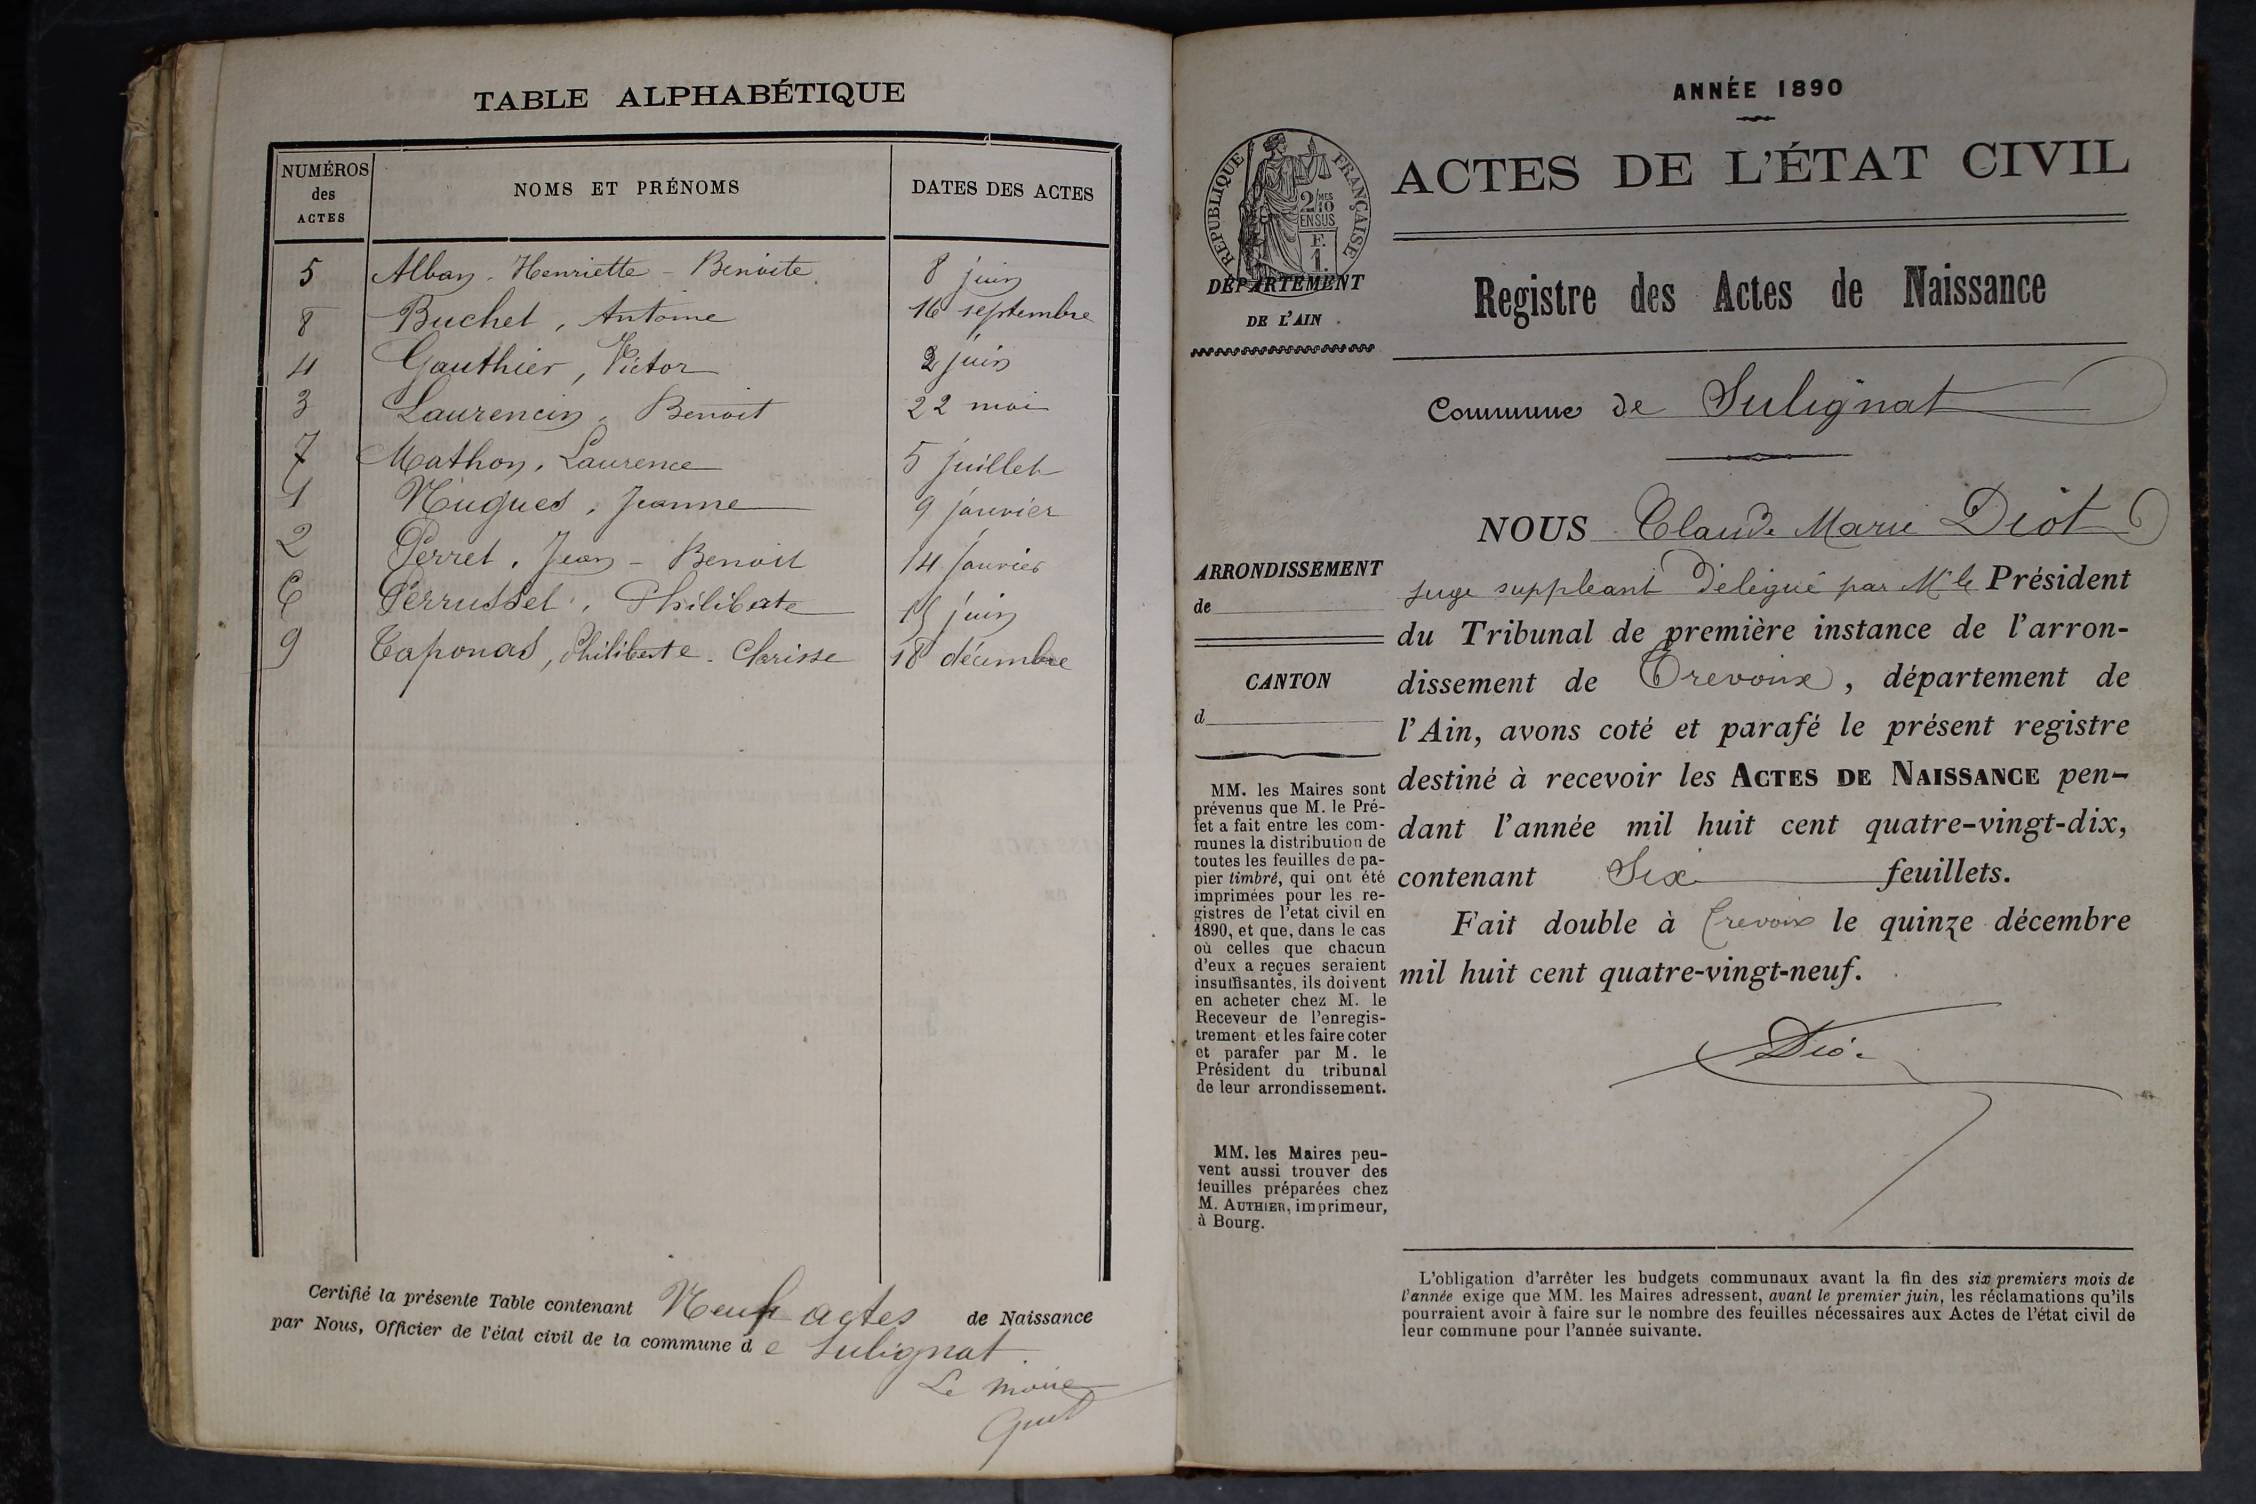 TABLE ALPHABÉTIQUE
NUMÉROS des ACTES NOMS ET PRÉNOMS DATES DES ACTES
5 Alban, Henriette - Benoite 8 juin
8 Buchet, Antoine 16 septembre
4 Gauthier, Victor 2 juin
3 Laurencin, Benoit 22 mai
7 Mathon, Laurence 5 juillet
1 Nugues, Jeanne 9 janvier
2 Perret, Jean - Benoit 14 Janvier
6 Perrussel, Philiberte 15 juin
9 Taponas, Philiberte - Clarisse 18 décembre
Certifié la présente Table contenant Neuf actes de Naissance
par Nous, Officier de l'état civil de la commune de Sulignat.
Le maire
ANNÉE 1890
RÉPUBLIQUE FRANÇAISE
2/10 MES
EN SUS
F.
1.
ACTES DE L'ÉTAT CIVIL
DÉPARTEMENT
DE L'AIN
Registre des Actes de Naissance
Commune de Sulignat
ARRONDISSEMENT
de
CANTON
d
MM. les Maires sont
prévenus que M. le Pré-
fet a fait entre les com-
munes la distribution de
toutes les feuilles de pa-
pier timbré, qui ont été
imprimées pour les re-
gistres de l'etat civil en
1890, et que, dans le cas
où celles que chacun
d'eux a reçues seraient
insuffisantes, ils doivent
en acheter chez M. le
Receveur de l'enregis-
trement et les faire coter
et parafer par M. le
Président du tribunal
de leur arrondissement.
MM. les Maires peu-
vent aussi trouver des
feuilles préparées chez
M. AUTHIER, imprimeur,
à Bourg.
NOUS Claude Marie Diot
juge suppléant délégué par Mr le Président
du Tribunal de première instance de l'arron-
dissement de Trevoux, département de
l'Ain, avons coté et parafé le présent registre
destiné à recevoir les ACTES DE NAISSANCE pen-
dant l'année mil huit cent quatre-vingt-dix,
contenant Six feuillets.
Fait double à Trevoux le quinze décembre
mil huit cent quatre-vingt-neuf.
Diot
L'obligation d'arrêter les budgets communaux avant la fin des six premiers mois de
l'année exige que MM. les Maires adressent, avant le premier juin, les réclamations qu'ils
pourraient avoir à faire sur le nombre des feuilles nécessaires aux Actes de l'état civil de
leur commune pour l'année suivante.